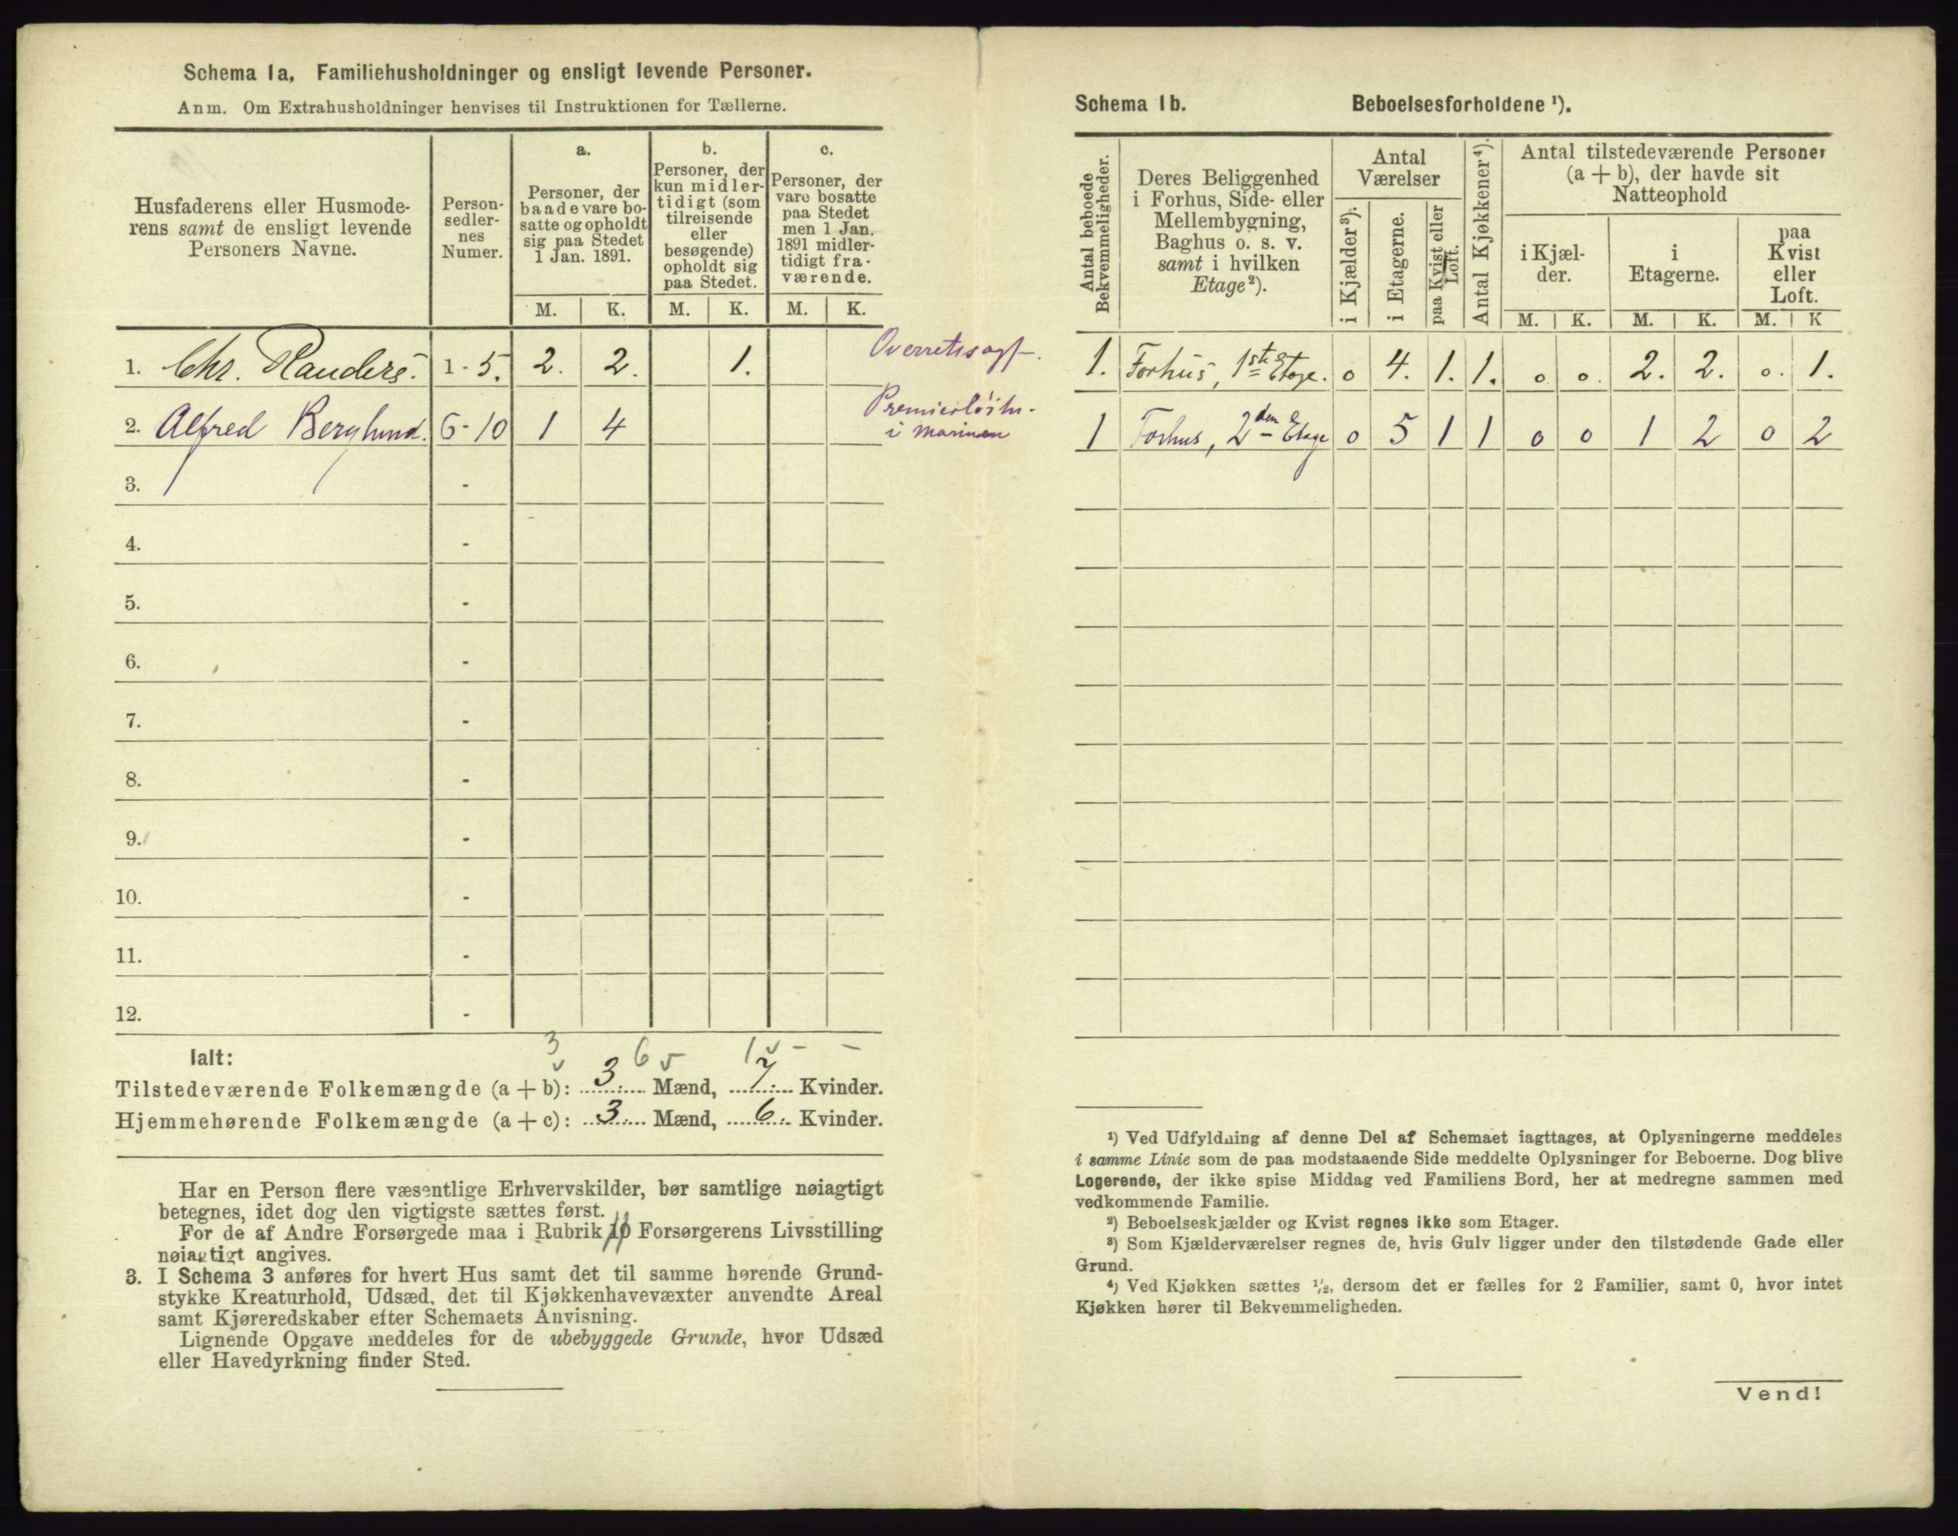 Schema 1a, Familiehusholdninger og ensligt levende Personer.
Anm. Om Extrahusholdninger henvises til Instruktionen for Tællerne.
Husfaderens eller Husmode-
rens samt de ensligt levende
Personers Navne.
Person-
sedler-
nes
Numer.
a.
Personer, der
baade vare bo-
satte og opholdt
sig paa Stedet
1 Jan. 1891.
b.
Personer, der
kun midler-
tidigt (som
tilreisende
eller
besøgende)
opholdt sig
paa Stedet.
c.
Personer, der
vare bosatte
paa Stedet
men 1 Jan.
1891 midler-
tidigt fra-
værende.
M. K. M. K. M. K.
1. Chr. Randers. 1-5. 2. 2. 1. Overretssagf.
2. Alfred Berglund. 6-10 1 4 Premierløitn.
i Marinen
3. -
4. -
5. -
6. -
7. -
8. -
9. -
10. -
11. -
12. -
3 6 1 - -
Ialt:
Tilstedeværende Folkemængde (a + b): 3. Mænd, 7. Kvinder.
Hjemmehørende Folkemængde (a + c): 3. Mænd, 6. Kvinder.
Har en Person flere væsentlige Erhvervskilder, bør samtlige nøiagtigt
betegnes, idet dog den vigtigste sættes først.
For de af Andre Forsørgede maa i Rubrik 11 Forsørgerens Livsstilling
nøiagtigt angives.
3. I Schema 3 anføres for hvert Hus samt det til samme hørende Grund-
stykke Kreaturhold, Udsæd, det til Kjøkkenhavevæxter anvendte Areal
samt Kjøreredskaber efter Schemaets Anvisning.
Lignende Opgave meddeles for de ubebyggede Grunde, hvor Udsæd
eller Havedyrkning finder Sted.
Schema 1b. Beboelsesforholdene ¹).
Antal beboede
Bekvemmeligheder.
Deres Beliggenhed
i Forhus, Side- eller
Mellembygning,
Baghus o. s. v.
samt i hvilken
Etage²).
Antal
Værelser
i Kjælder³).
i Etagerne.
paa Kvist eller
Loft.
Antal Kjøkkener⁴).
Antal tilstedeværende Personer
(a + b), der havde sit
Natteophold
i Kjæl-
der.
i
Etagerne.
paa
Kvist
eller
Loft.
M. K. M. K. M. K
1. Forhus, 1ste Etage. 0 4. 1. 1. 0. 0. 2. 2. 0. 1.
1 Forhus, 2den Etage 0 5 1 1 0 0 1 2 0 2
¹) Ved Udfyldning af denne Del af Schemaet iagttages, at Oplysningerne meddeles
i samme Linie som de paa modstaaende Side meddelte Oplysninger for Beboerne. Dog blive
Logerende, der ikke spise Middag ved Familiens Bord, her at medregne sammen med
vedkommende Familie.
²) Beboelseskjælder og Kvist regnes ikke som Etager.
³) Som Kjælderværelser regnes de, hvis Gulv ligger under den tilstødende Gade eller
Grund.
⁴) Ved Kjøkken sættes ¹/₂, dersom det er fælles for 2 Familier, samt 0, hvor intet
Kjøkken hører til Bekvemmeligheden.
Vend!